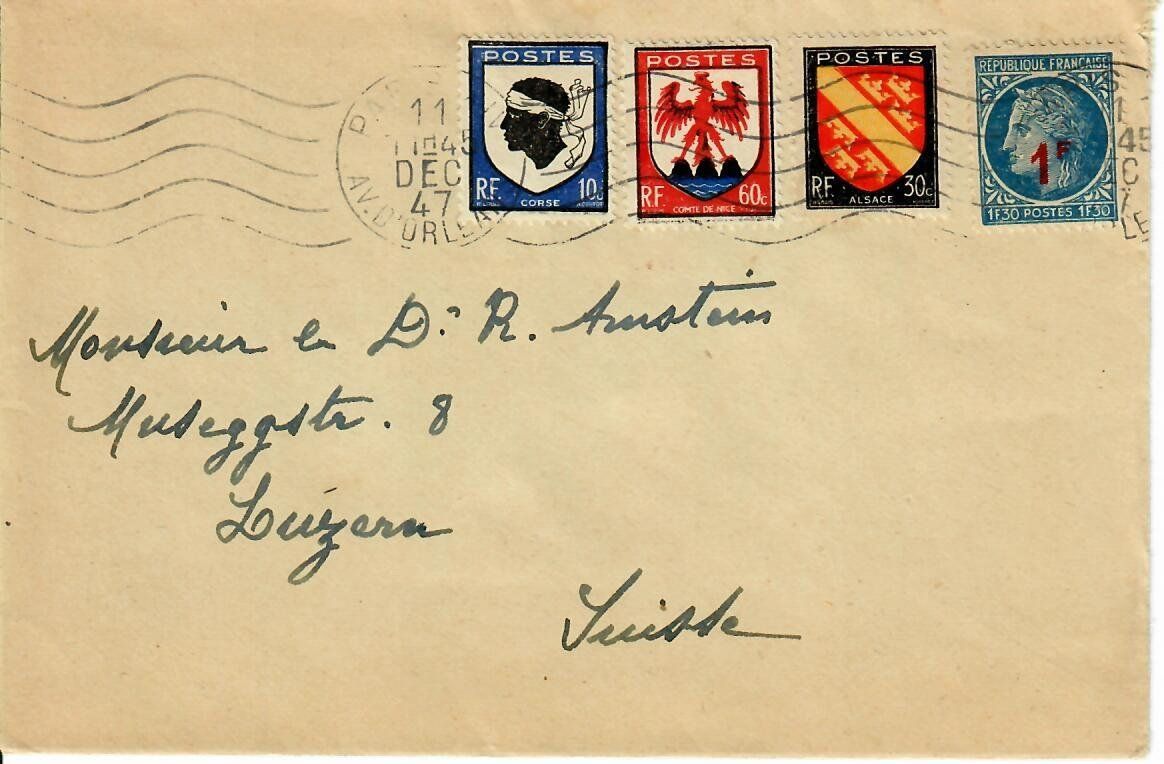 POSTES
RF 10c
CORSE
POSTES
RF 60c
COMTE DE NICE
POSTES
RF 30c
ALSACE
REPUBLIQUE FRANÇAISE
1F
1F30 POSTES 1F30
11
11H45
DEC
47
AV. D'ORLEA
Monsieur le Dr R. Amstein
Museggstr. 8
Luzern
Suisse